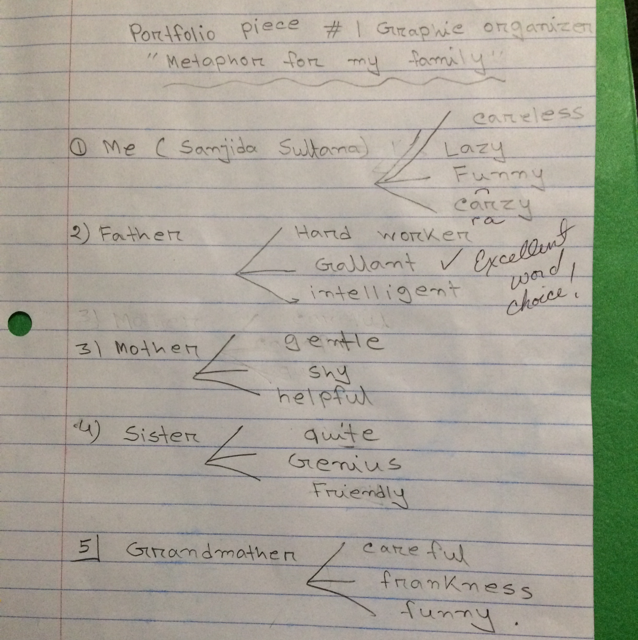 Portfolio piece # 1 Graphic organizer
"Metaphor for my family"
careless
① Me (Sanjida Sultana)
Lazy
Funny
carzy
ra
2) Father
Hard worker
Gallant ✓ Excellent word choice!
intelligent
3) Mother
gentle
shy
helpful
4) Sister
quite
Genius
Friendly
5| Grandmather
careful
frankness
funny.